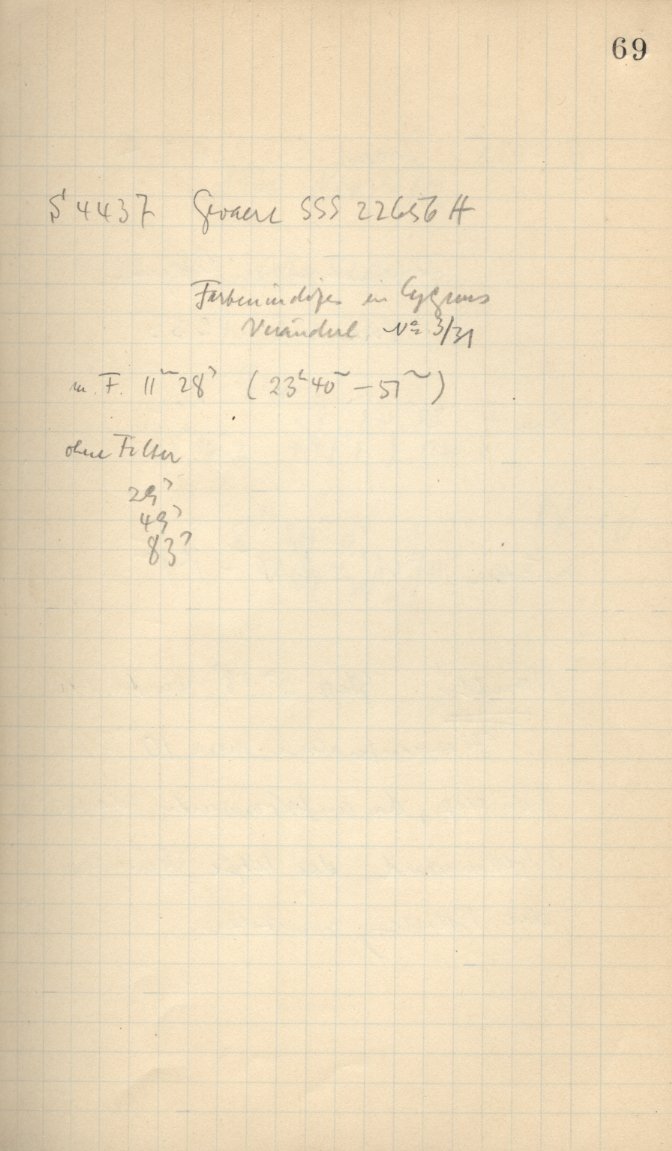 69
S 4437 Gevaert SSS 22656 H
Farbenindizes in Cygnus
Veränderl. No 3/31
m. F. 11ᵐ 28ˢ (23ʰ 40ᵐ – 51ᵐ)
ohne Filter
29ˢ
49ˢ
83ˢ